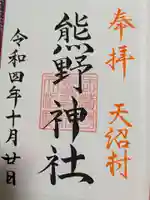 奉拝
天沼村
熊野神社
令和四年十月廿日